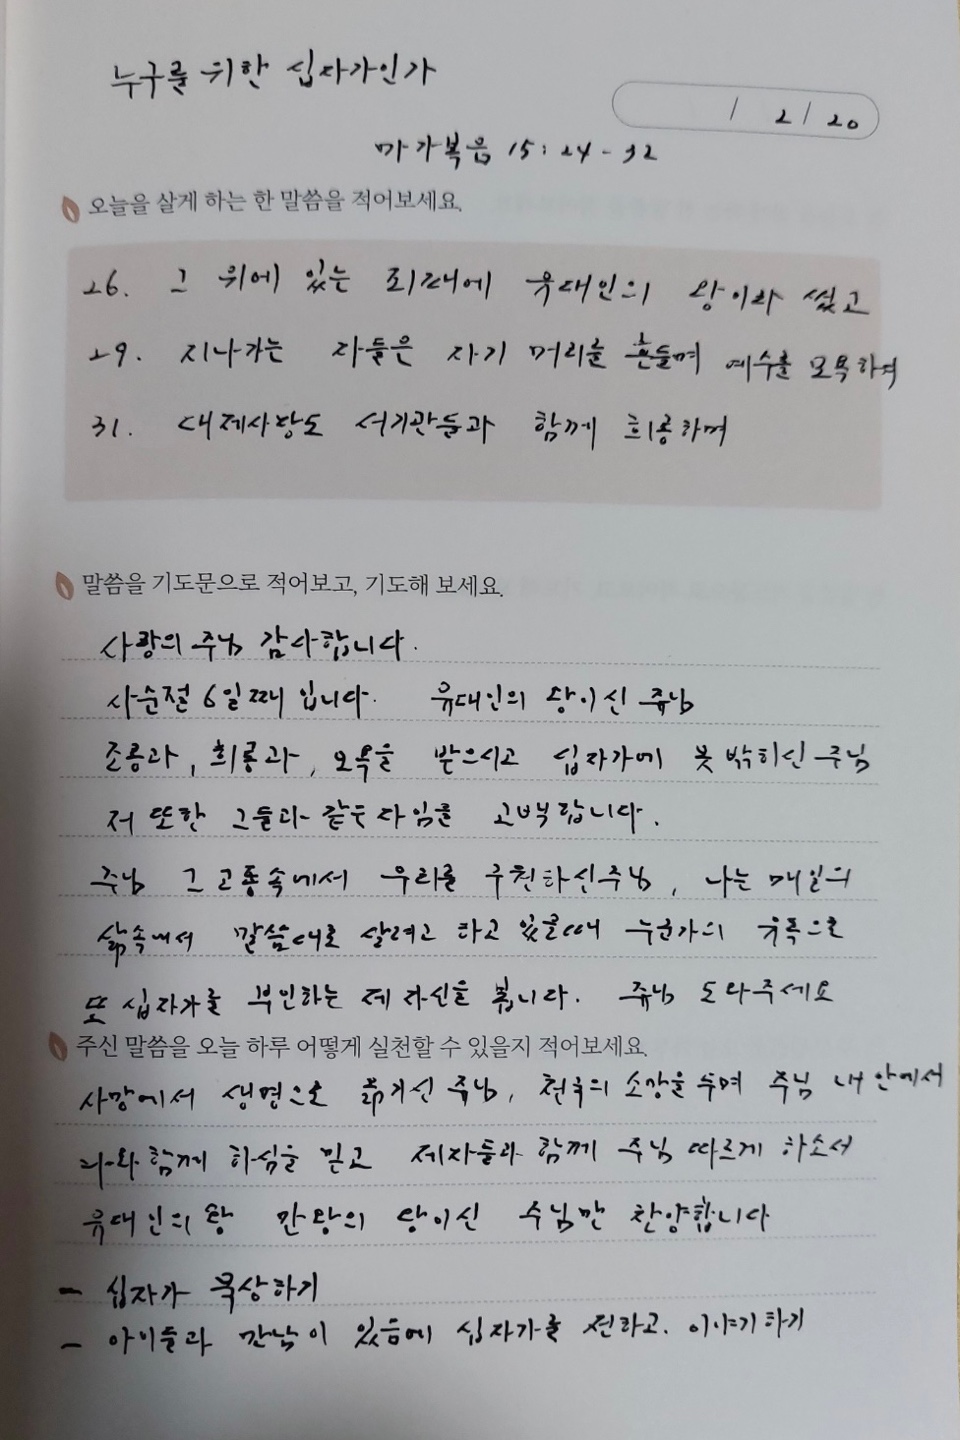 누구를 위한 십자가인가
/ 2 / 20
마가복음 15:24-32
오늘을 살게 하는 한 말씀을 적어보세요.
26. 그 위에 있는 죄패에 유대인의 왕이라 썼고
29. 지나가는 자들은 자기 머리를 흔들며 예수를 모욕하여
31. 대제사장도 서기관들과 함께 희롱하며
말씀을 기도문으로 적어보고, 기도해 보세요.
사랑의 주님 감사합니다.
사순절 6일째 입니다. 유대인의 왕이신 주님
조롱과, 희롱과, 모욕을 받으시고 십자가에 못 박히신 주님
저 또한 그들과 같은 자임을 고백합니다.
주님 그 고통속에서 우리를 구원하신 주님, 나는 매일의
삶속에서 말씀대로 살려고 하고 있을때 누군가의 유혹으로
또 십자가를 부인하는 제 자신을 봅니다. 주님 도와주세요
주신 말씀을 오늘 하루 어떻게 실천할 수 있을지 적어보세요.
사망에서 생명으로 옮기신 주님, 천국의 소망을 두며 주님 내 안에서
나와 함께 하심을 믿고 제자들과 함께 주님 따르게 하소서
유대인의 왕 만왕의 왕이신 주님만 찬양합니다
- 십자가 묵상하기
- 아이들과 만남이 있음에 십자가를 전하고. 이야기하기